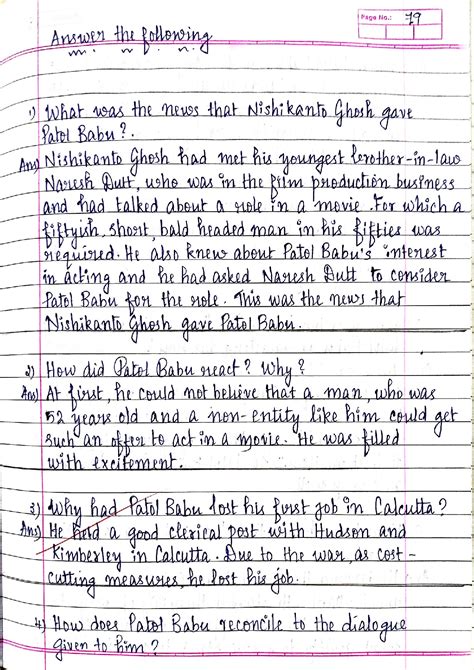 Page No.: 79
Answer the following
1) What was the news that Nishikanto Ghosh gave
Patol Babu?
Ans) Nishikanto Ghosh had met his youngest brother-in-law
Naresh Dutt, who was in the film production business
and had talked about a role in a movie. For which a
fiftyish, short, bald headed man in his fifties was
required. He also knew about Patol Babu's interest
in acting and he had asked Naresh Dutt to consider
Patol Babu for the role. This was the news that
Nishikanto Ghosh gave Patol Babu.
2) How did Patol Babu react? Why?
Ans) At first, he could not believe that a man, who was
52 years old and a non-entity like him could get
such an offer to act in a movie. He was filled
with excitement.
3) Why had Patol Babu lost his first job in Calcutta?
Ans) He held a good clerical post with Hudson and
Kimberley in Calcutta. Due to the war, as cost-
cutting measures, he lost his job.
4) How does Patol Babu reconcile to the dialogue
given to him?